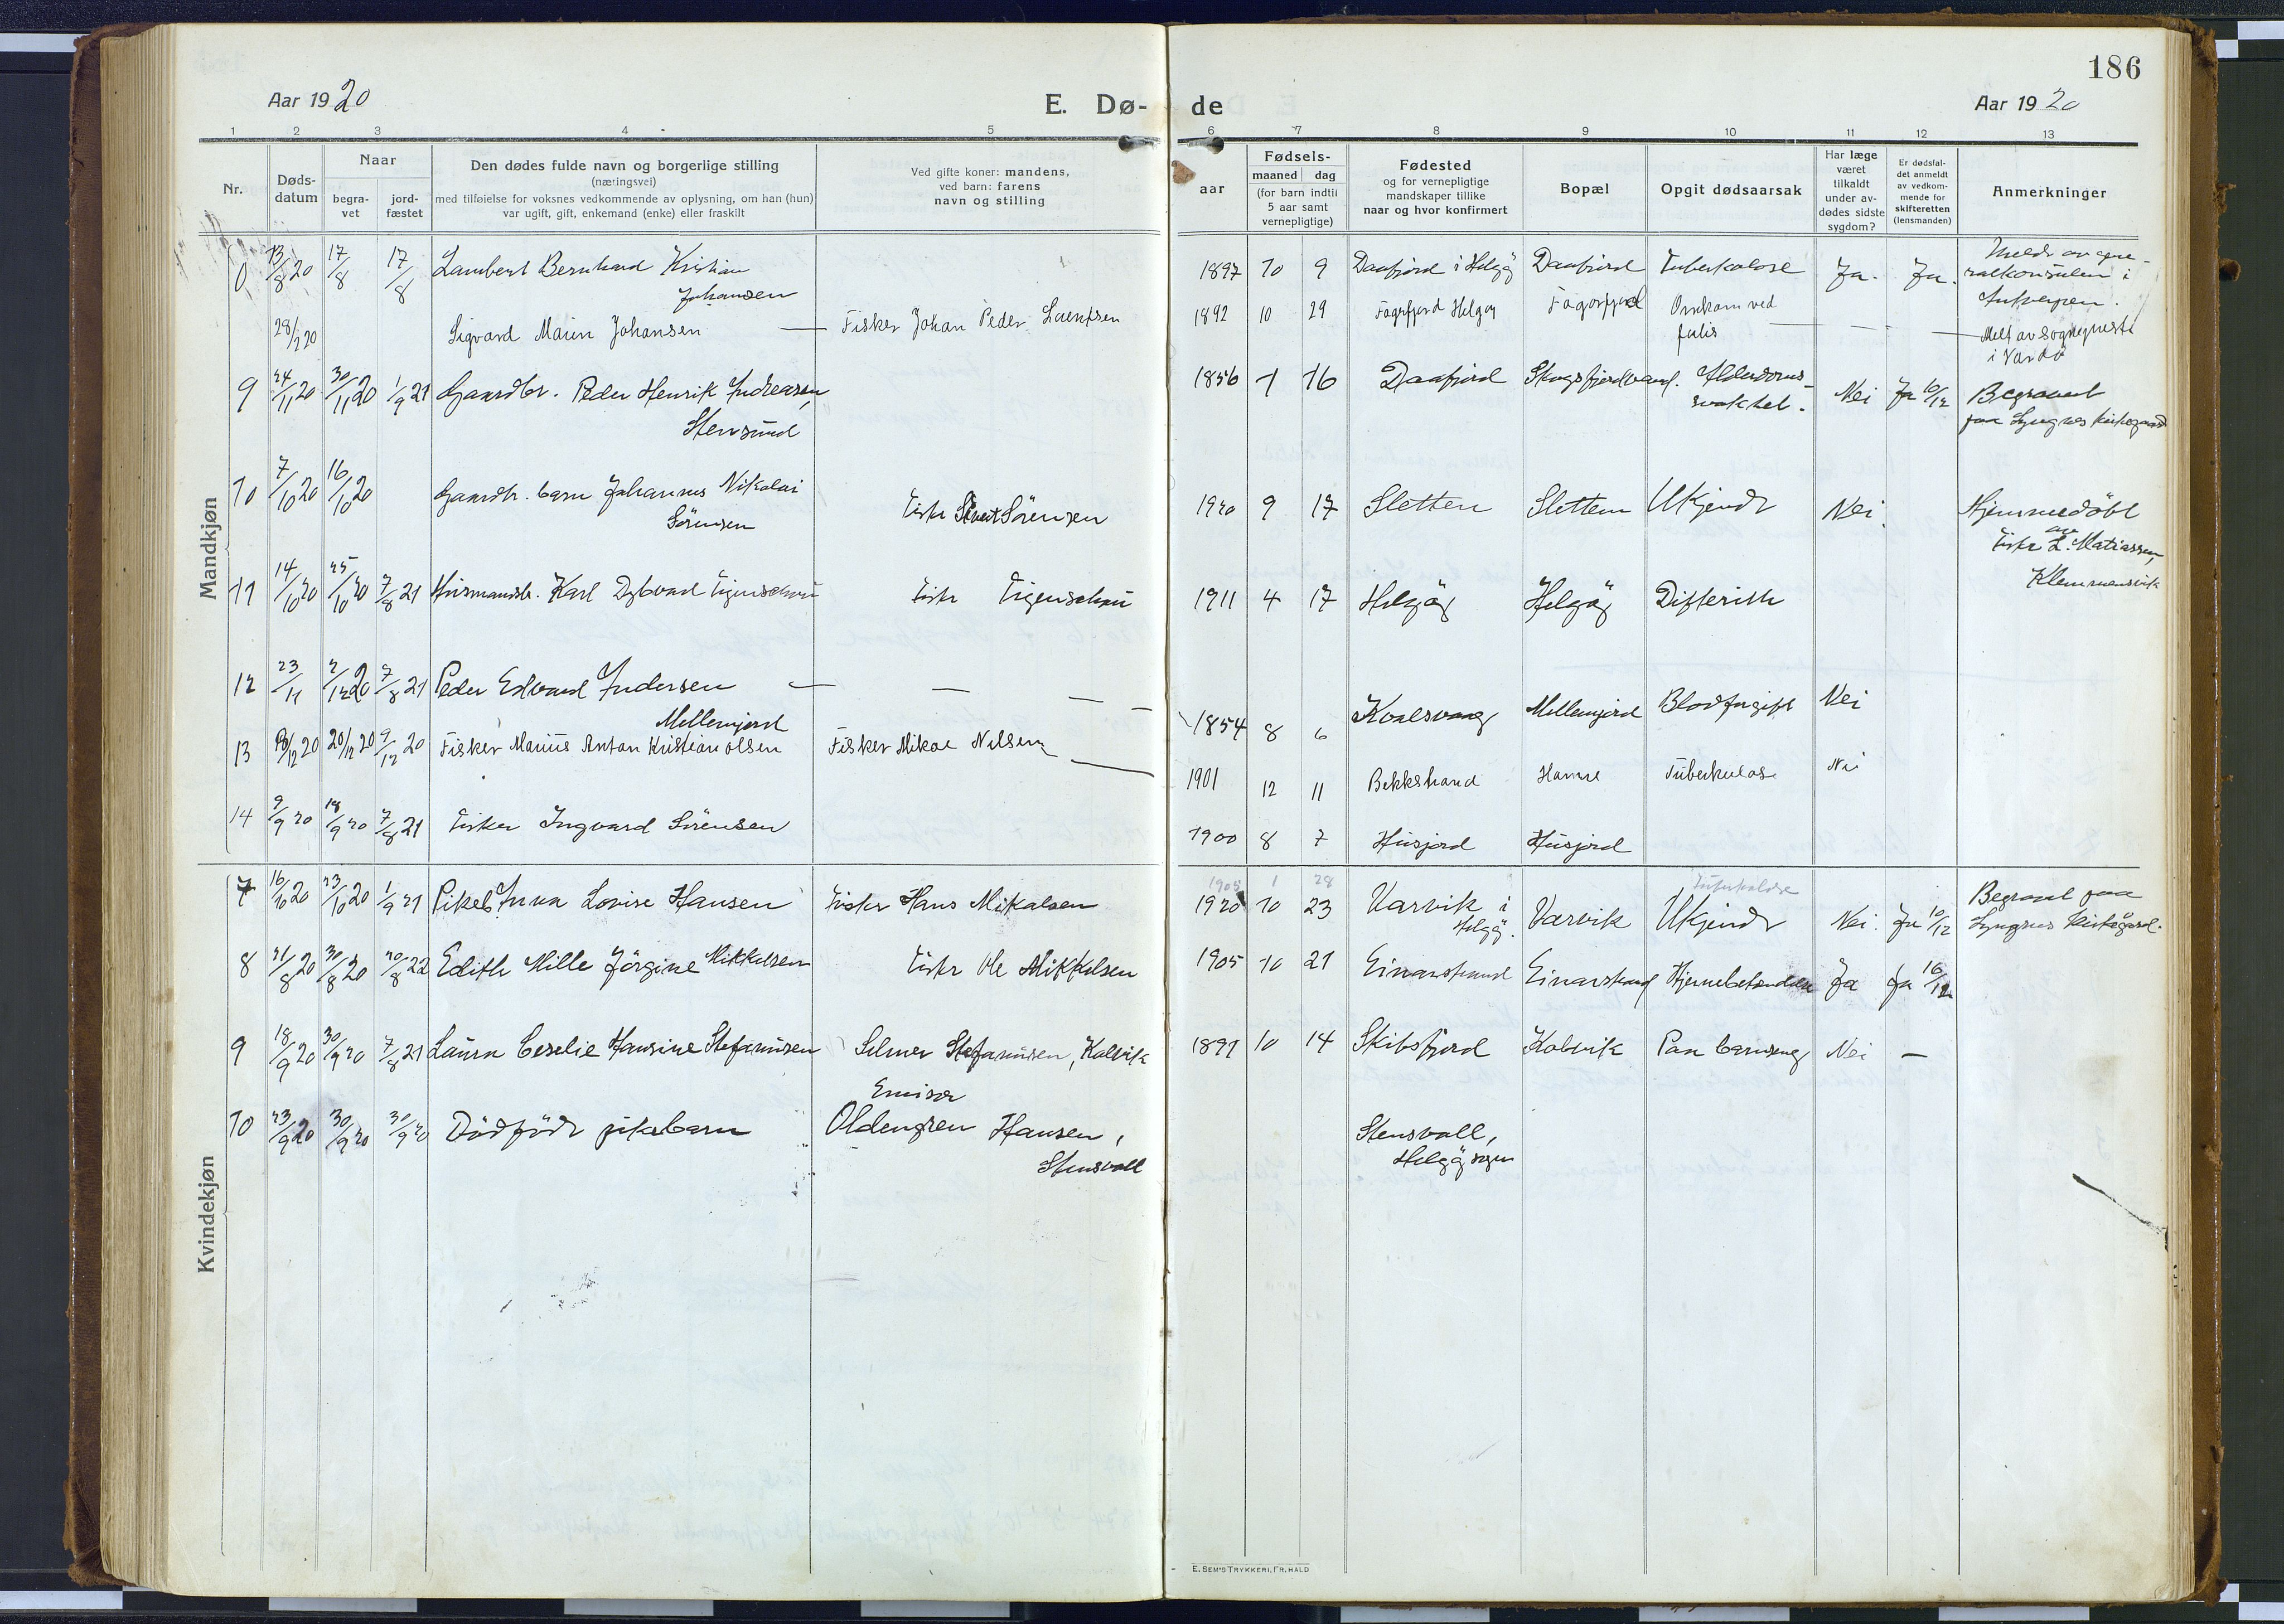 186
Aar 1920 E. Dø- de Aar 1920
1 2 3 4 5 6 7 8 9 10 11 12 13
Nr.
Døds-
datum
Naar
begra-
vet
jord-
fæstet
Den dødes fulde navn og borgerlige stilling
(næringsvei)
med tilføielse for voksnes vedkommende av oplysning, om han (hun)
var ugift, gift, enkemand (enke) eller fraskilt
Ved gifte koner: mandens,
ved barn: farens
navn og stilling
aar
Fødsels-
maaned dag
(for barn indtil
5 aar samt
vernepligtige)
Fødested
og for vernepligtige
mandskaper tillike
naar og hvor konfirmert
Bopæl
Opgit dødsaarsak
Har læge
været
tilkaldt
under av-
dødes sidste
sygdom?
Er dødsfal-
det anmeldt
av vedkom-
mende for
skifteretten
(lensmanden)
Anmerkninger
Mandkjøn
0 13/8 20 17/8 17/8 Lambert Bernhard Kristian
Johansen
1897 10 9 Daafjord i Helgøy Daafjord Tuberkulose Ja. Ja.
Meldt av gene-
ralkonsulen i
Antverpen.
28/2 20 Sigvard Marin Johansen — Fisker Johan Peder Lorentsen 1892 10 29 Fagerfjord Helgøy Fagerfjord Omkom ved
forlis
Melt av Sogneprest
i Vardø
9 24/11 20 30/11 20 1/9 21 Gaardbr. Peder Henrik Andreasen,
Stensund
1856 1 16 Daafjord Skogsfjordvand. Alderdoms-
svakhet. Nei Ja 16/12 Begravet
paa Lyngnes kirkegaard
10 7/10 20 16/10 20 Gaardb. barn Johannes Nikolai
Sörensen
Fisker Sivert Sörensen 1920 9 17 Sletten Sletten Ukjendt Nei. Hjemmedöbt
av
Fisker L. Matiassen,
Klemmensvik
11 14/10 20 25/10 20 7/8 21 Husmandsb. Karl Dybvard Figenschau Fisker Figenschau 1911 4 17 Helgøy Helgøy Difterith
12 23/11 2/12 20 7/8 21 Peder Edvard Andersen — — — —
Mellemjord
1854 8 6 Kvalsvaag Mellemjord Blodforgift Nei
13 13/12 20 20/12 20 9/12 20 Fisker Marius Anton Kristian Olsen Fisker Mikal Nilsen — 1901 12 11 Bekkstrand Hamre Tuberkulos Nei
14 9/9 20 18/9 20 7/8 21 Fisker Ingvard Sörensen 1900 8 7 Husjord Husjord
Kvindekjøn
1905 1 28 Tuberkulose
7 16/10 20 23/10 20 1/9 21 Pikeb. Anna Lovise Hansen Fisker Hans Mikalsen 1920 10 23 Vasvik i
Helgøy. Vasvik Ukjendt Nei. Ja 16/12 Begravet paa
Lyngnes Kirkegård.
8 21/8 20 30/8 20 20/8 22 Edith Mille Jörgine Mikkelsen Fisker Ole Mikkelsen 1905 10 21 Einarstrand Einarstrand Hjernebetændelse Ja Ja 16/12
9 18/9 20 30/9 20 7/8 21 Laura Ceselie Hansine Stefanusen Selmer Stefanusen, Kalvik 1891 10 14 Skibsfjord Kobvik Paa barseng Nei —
10 23/9 20 30/9 20 30/9 20 Dödfödt pikebarn Emisær
Oldengren Hansen,
Stensvoll
Stensvoll,
Helgøy sogn
E. SEM'S TRYKKERI, FR. HALD